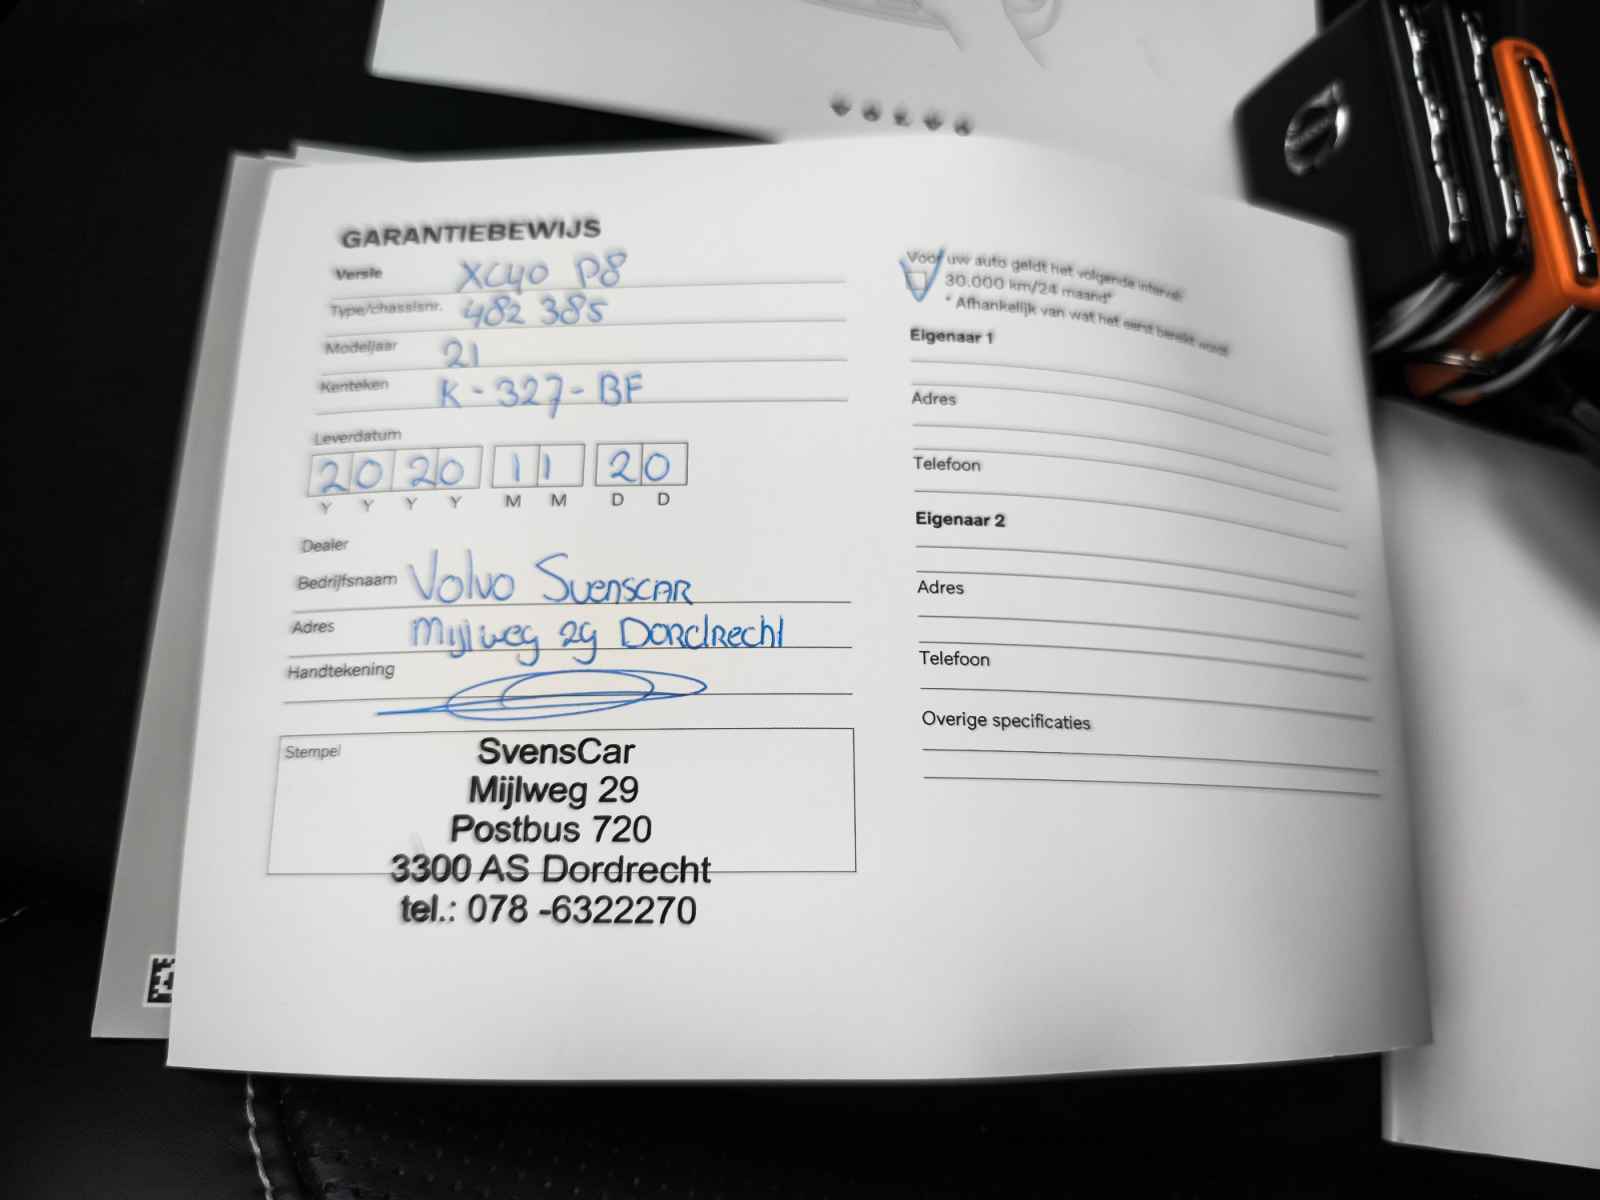 GARANTIEBEWIJS
Versie XC40 P8
Type/chassisnr. 482 385
Modeljaar 21
Kenteken K-327-BF
Leverdatum
2020 11 20
Y Y Y Y M M D D
Dealer
Bedrijfsnaam Volvo SvensCAR
Adres Mijlweg 29 Dordrecht
Handtekening
Stempel
SvensCar
Mijlweg 29
Postbus 720
3300 AS Dordrecht
tel.: 078 -6322270
Voor uw auto geldt het volgende interval:
30.000 km/24 maand*
* Afhankelijk van wat het eerst bereikt wordt
Eigenaar 1
Adres
Telefoon
Eigenaar 2
Adres
Telefoon
Overige specificaties